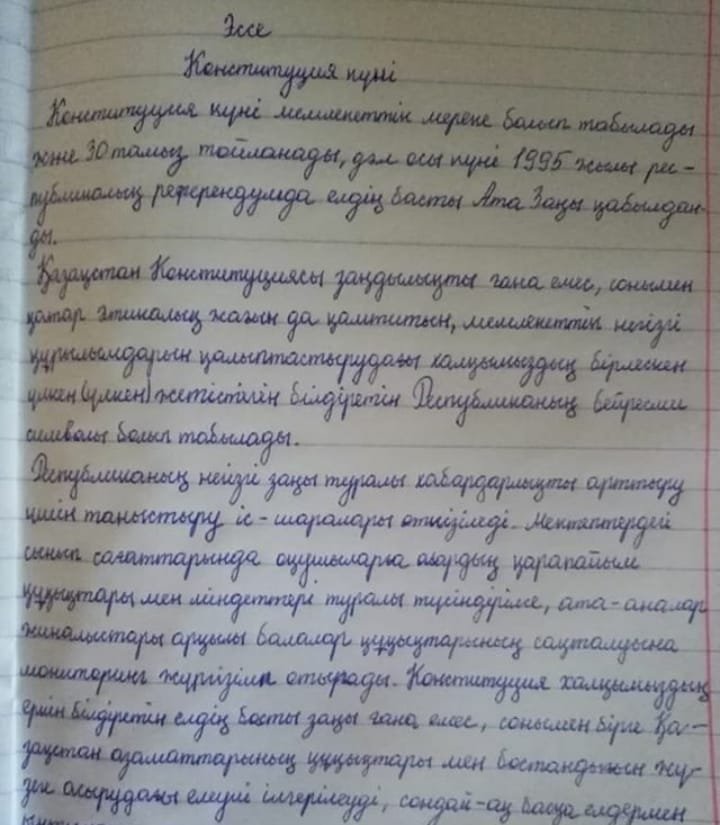 Эссе
Конституция күні
Конституция күні мемлекеттік мереке болып табылады
және 30 тамыз тойланады, дәл осы күні 1995 жылы рес-
публикалық референдумда елдің басты Ата Заңы қабылдан-
ды.
Қазақстан Конституциясы заңдылықты ғана емес, сонымен
қатар этикалық жағын да қамтитын, мемлекеттің негізгі
құрылымдарын қалыптастырудағы халқымыздың бірлескен
үлкен (үлкен) жетістігін білдіретін Республиканың бейресми
символы болып табылады.
Республиканың негізгі заңы туралы хабардарлықты арттыру
үшін таныстыру іс-шаралары өткізіледі. Мектептердегі
сынып сағаттарында оқушыларға олардың қарапайым
құқықтары мен міндеттері туралы түсіндірме, ата-аналар
жиналыстары арқылы балалар құқықтарының сақталуына
мониторинг жүргізіліп отырады. Конституция халқымыздың
еркін білдіретін елдің басты заңы ғана емес, сонымен бірге Қа-
зақстан азаматтарының құқықтары мен бостандығын жү-
зеге асырудағы елеулі ілгерілеуді, сондай-ақ басқа елдермен